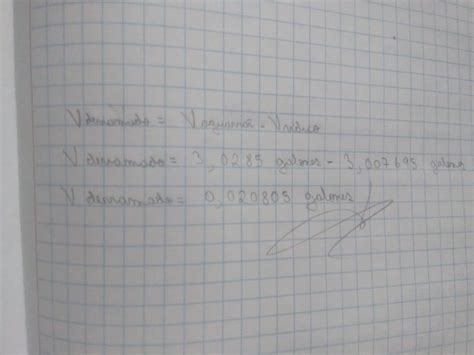 V derramado = V aguarrás - V vidrio
V derramado = 3,0285 galones - 3,007695 galones
V derramado = 0,020805 galones